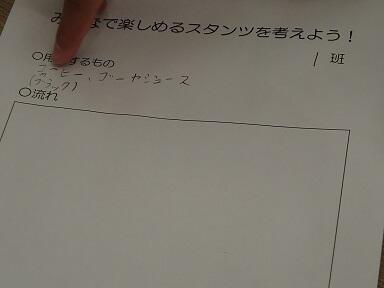 みんなで楽しめるスタンツを考えよう！
1 班
○用意するもの
コーヒー、ゴーヤジュース
(ブラック)
○流れ